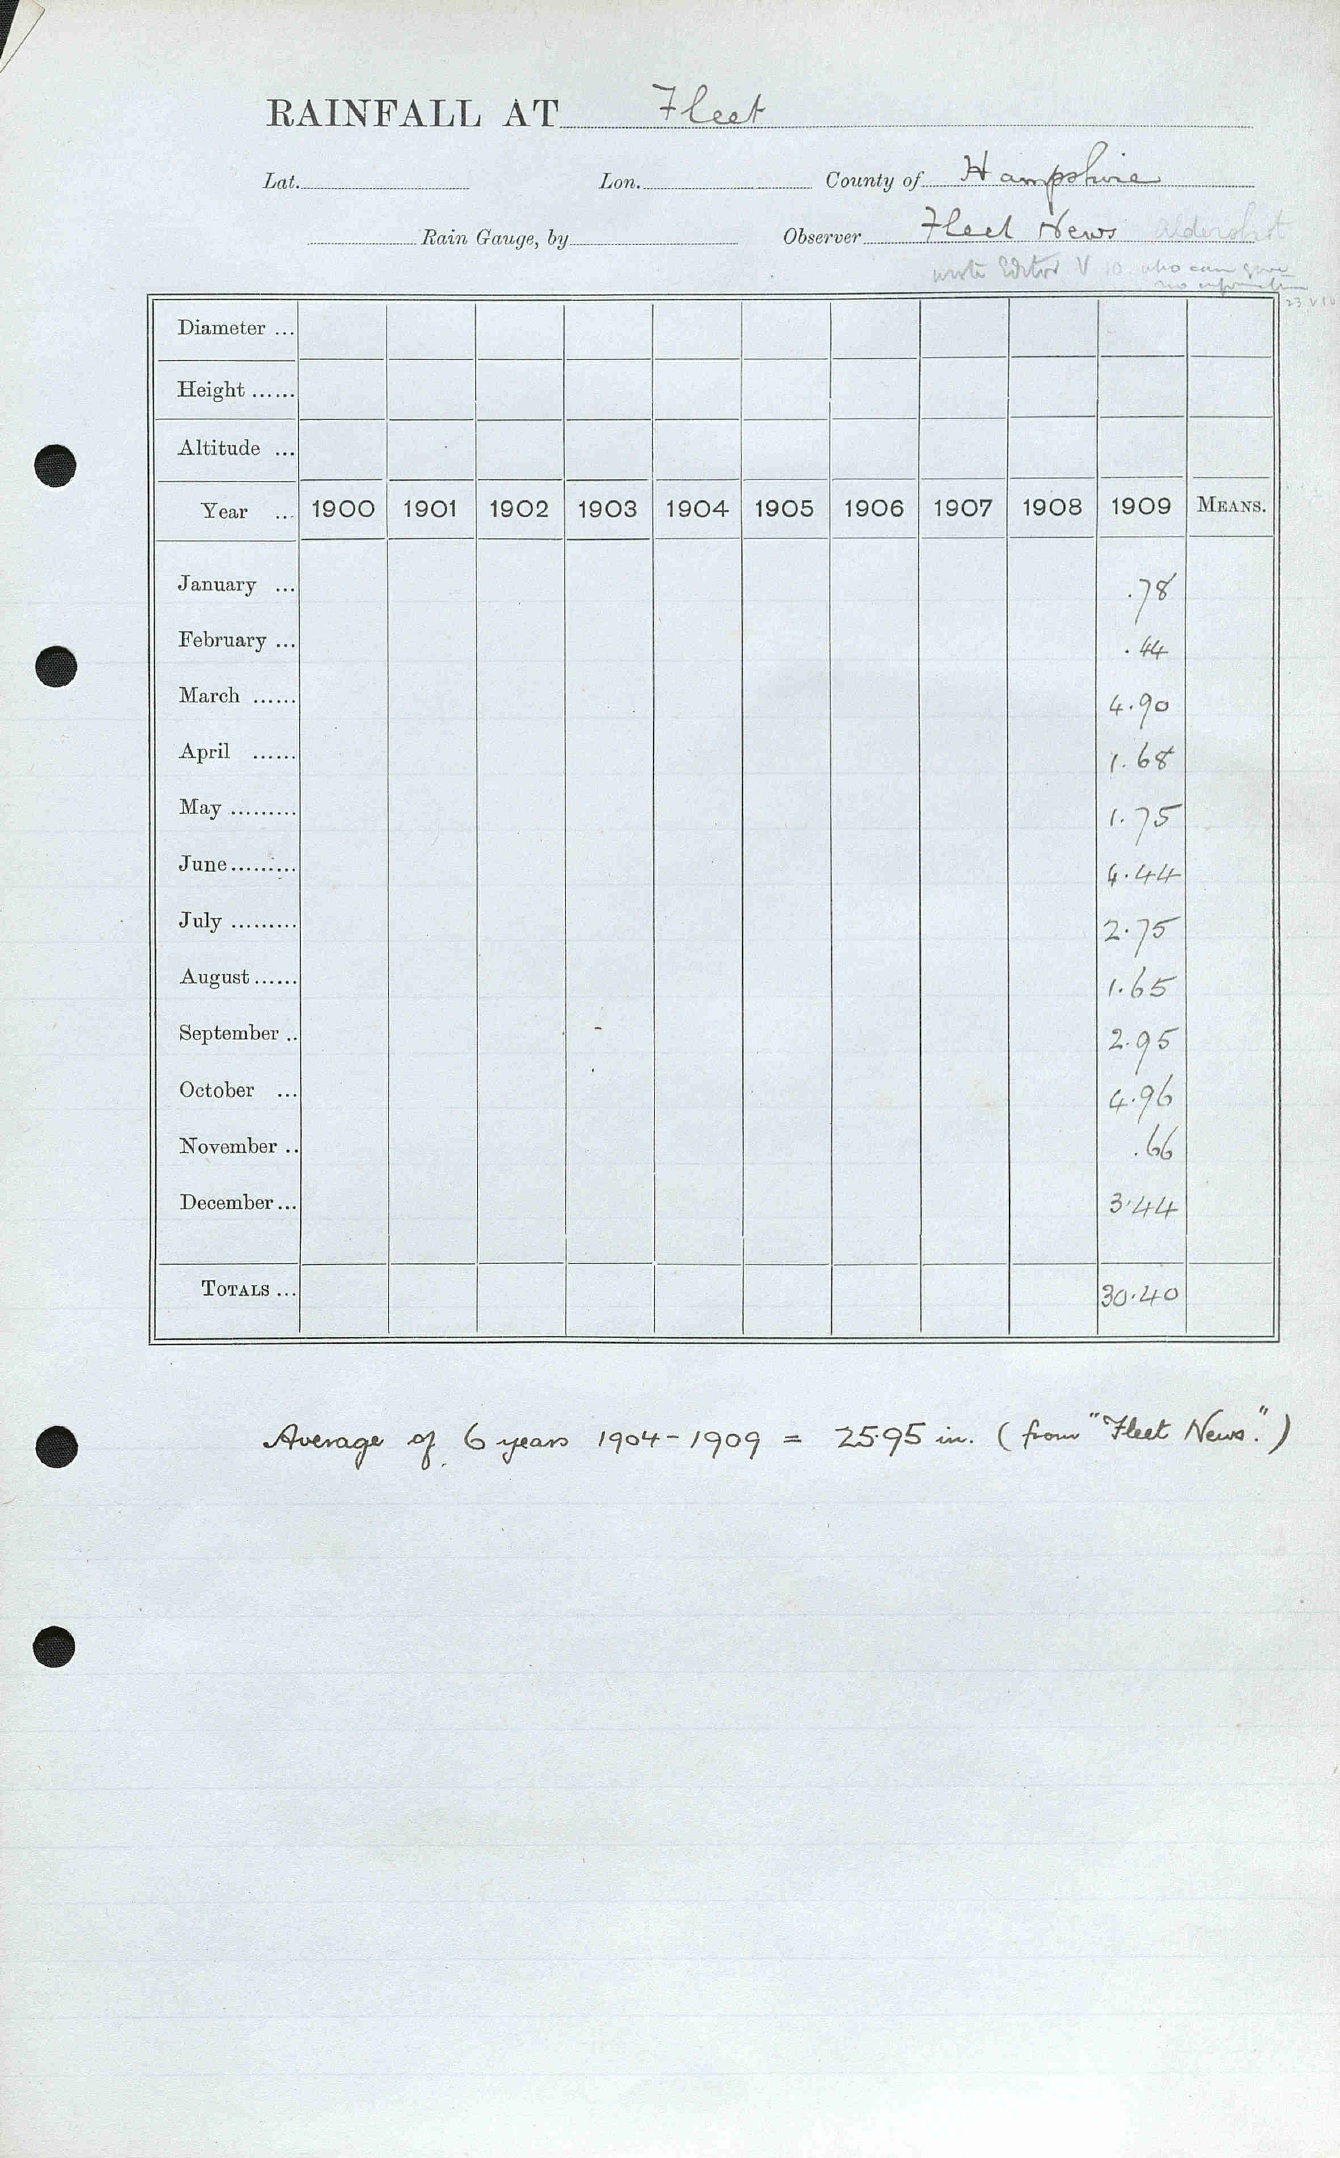 RAINFALL AT Fleet
Lat. Lon. County of Hampshire
Rain Gauge, by Observer Fleet News Aldershot
wrote Editor V 10. who can give
no information
23 V 10
Diameter ...
Height ......
Altitude ...
Year ... 1900 1901 1902 1903 1904 1905 1906 1907 1908 1909 MEANS.
January ... .78
February ... .44
March ...... 4.90
April ...... 1.68
May ......... 1.75
June......... 4.44
July ......... 2.75
August...... 1.65
September .. 2.95
October ... 4.96
November .. .66
December... 3.44
TOTALS ... 30.40
Average of 6 years 1904-1909 = 25.95 in. (from "Fleet News.")